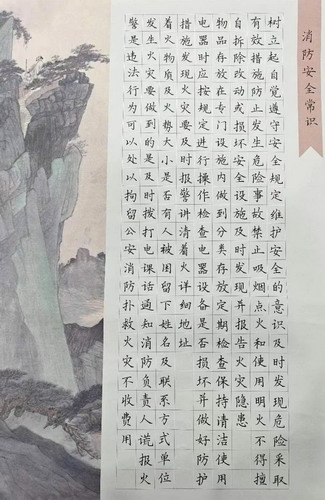 消防安全常识
树立起自觉遵守安全规定维护安全的意识及时发现危险采取
有效措施防止发生危险事故禁止吸烟点火和使用明火不得擅
自拆除改动或损坏安全设施及时发现并报告火灾隐患
物品存放在专门设施内做到分类存放定期检查保持清洁使用
电器时应按规定进行操作检查电器设备是否损坏并做好防护
措施发现火灾要及时报警讲清着火详细地址
着火物质及火势大小是否有人被困留下姓名及联系方式单位
发生火灾要做到的是及时拨打电课话通知消防负责人谎报火
警是违法行为可以处以拘留公安消防扑救火灾不收费用